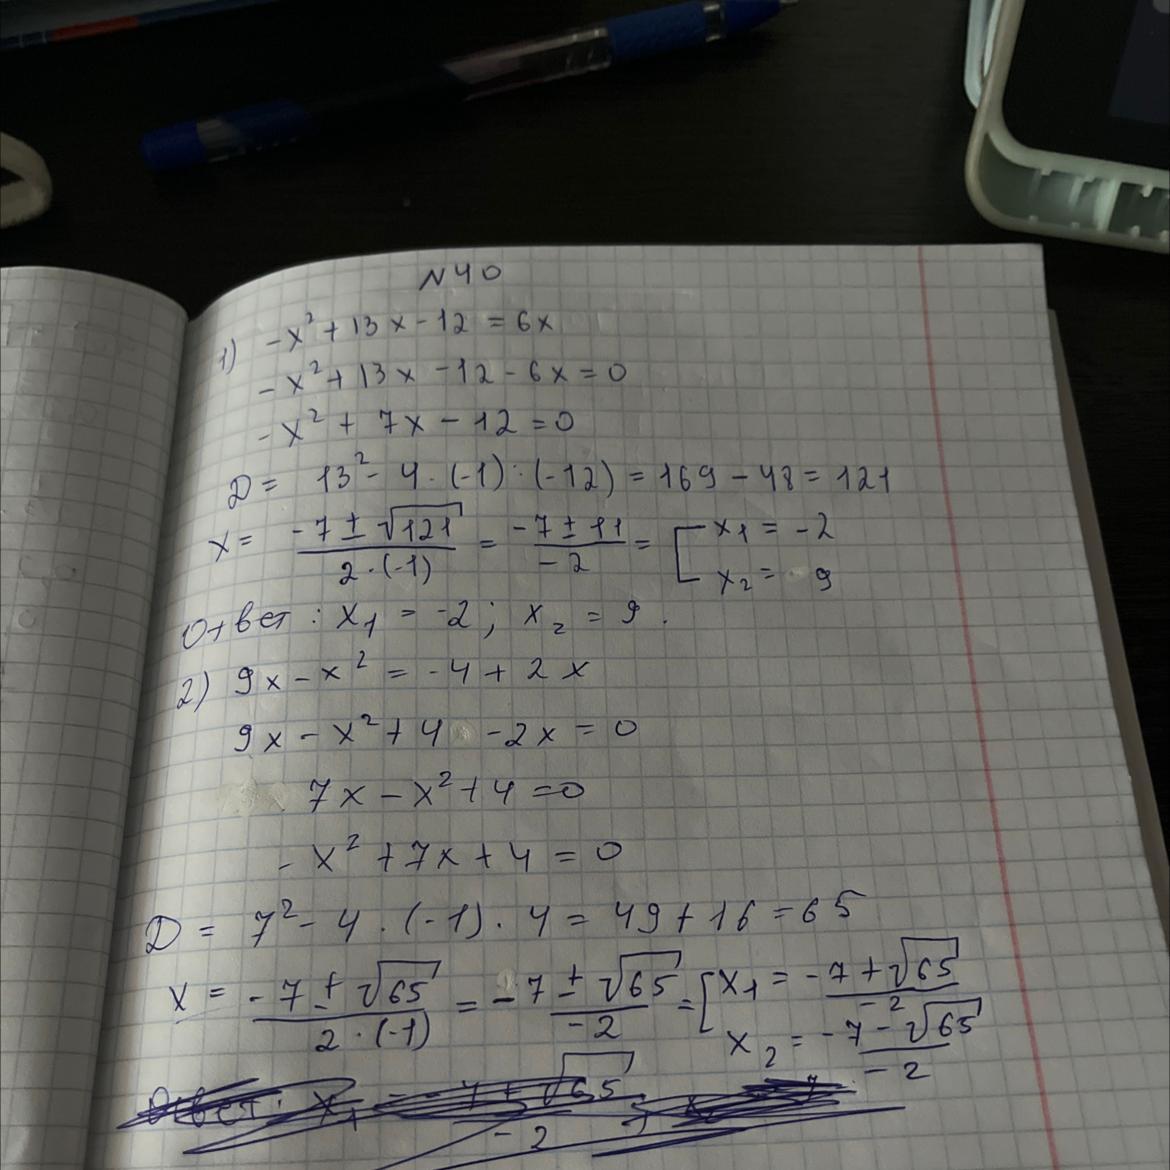 N40
1) -x² + 13x - 12 = 6x
-x² + 13x - 12 - 6x = 0
-x² + 7x - 12 = 0
D = 13² - 4 · (-1) · (-12) = 169 - 48 = 121
x = (-7 ± √121)/(2·(-1)) = (-7 ± 11)/(-2) = [ x₁ = -2
x₂ = 9
Ответ: x₁ = -2; x₂ = 9.
2) 9x - x² = -4 + 2x
9x - x² + 4 - 2x = 0
7x - x² + 4 = 0
-x² + 7x + 4 = 0
D = 7² - 4 · (-1) · 4 = 49 + 16 = 65
x = (-7 ± √65)/(2·(-1)) = (-7 ± √65)/(-2) = [ x₁ = (-7 + √65)/(-2)
x₂ = (-7 - √65)/(-2)